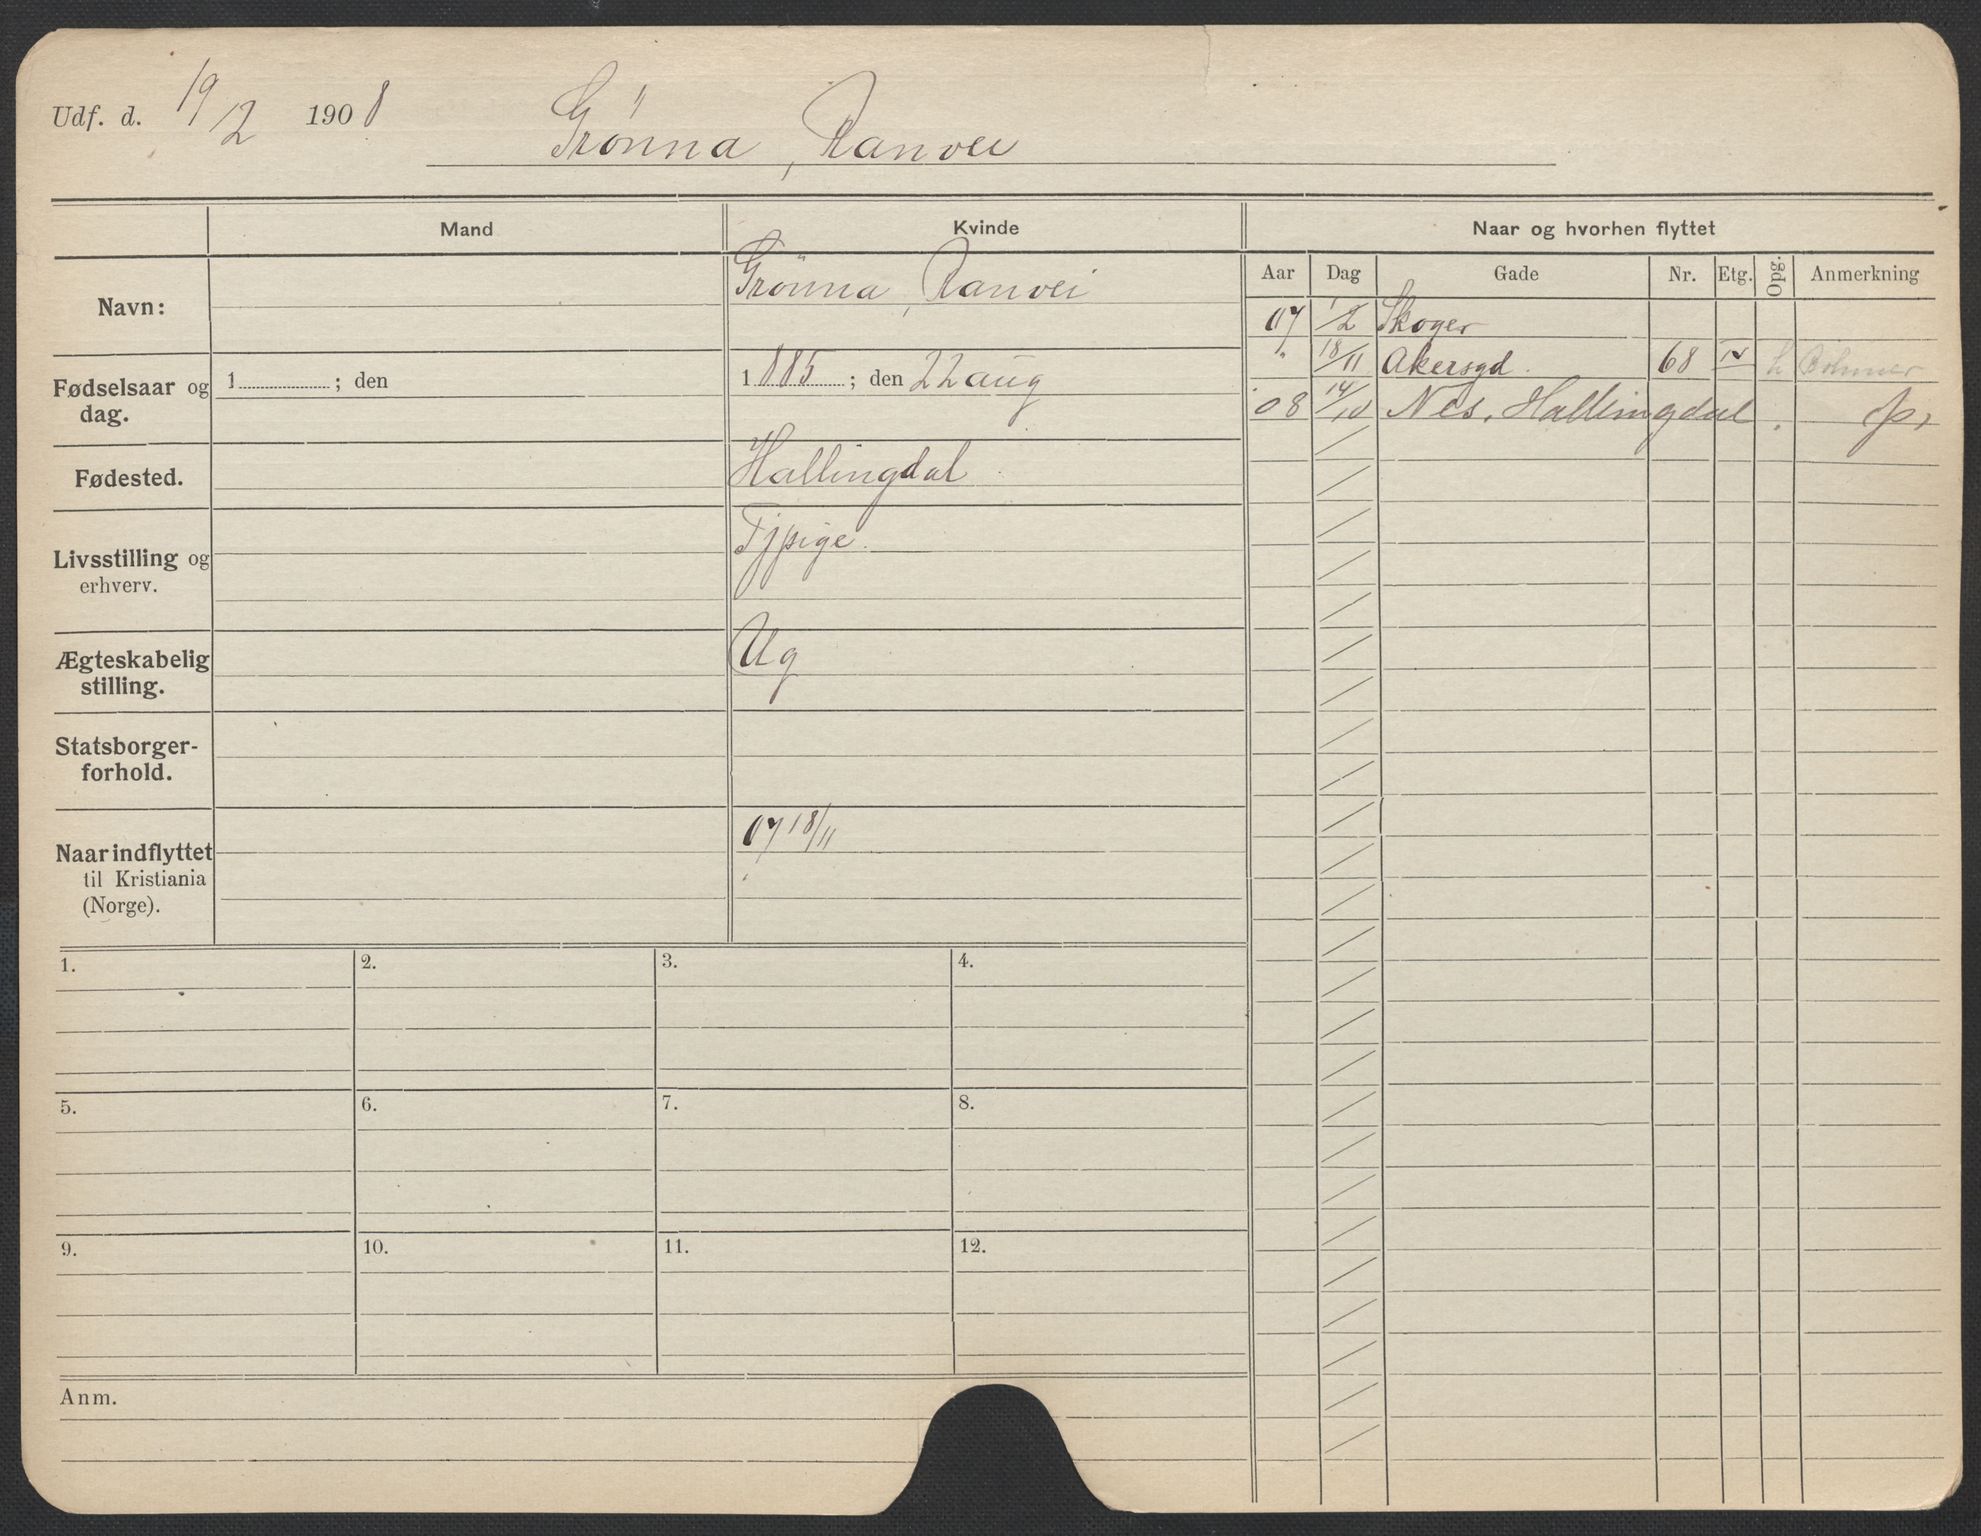 Udf. d. 19/2 1908 Grönna, Ranvei
Mand Kvinde Naar og hvorhen flyttet
Aar Dag Gade Nr. Etg. Opg. Anmerkning
Navn: Grönna, Ranvei
07 1/2 Skoger
" 18/11 Akersgd. 68 IV h Bohmer
08 14/10 Nes, Hallingdal.
Fødselsaar og dag. 1 ; den 1885 ; den 22 aug
Fødested. Hallingdal
Livsstilling og erhverv. Tjpige.
Ægteskabelig stilling. Ug
Statsborger-
forhold.
Naar indflyttet 07 18/11
til Kristiania
(Norge).
1. 2. 3. 4.
5. 6. 7. 8.
9. 10. 11. 12.
Anm.